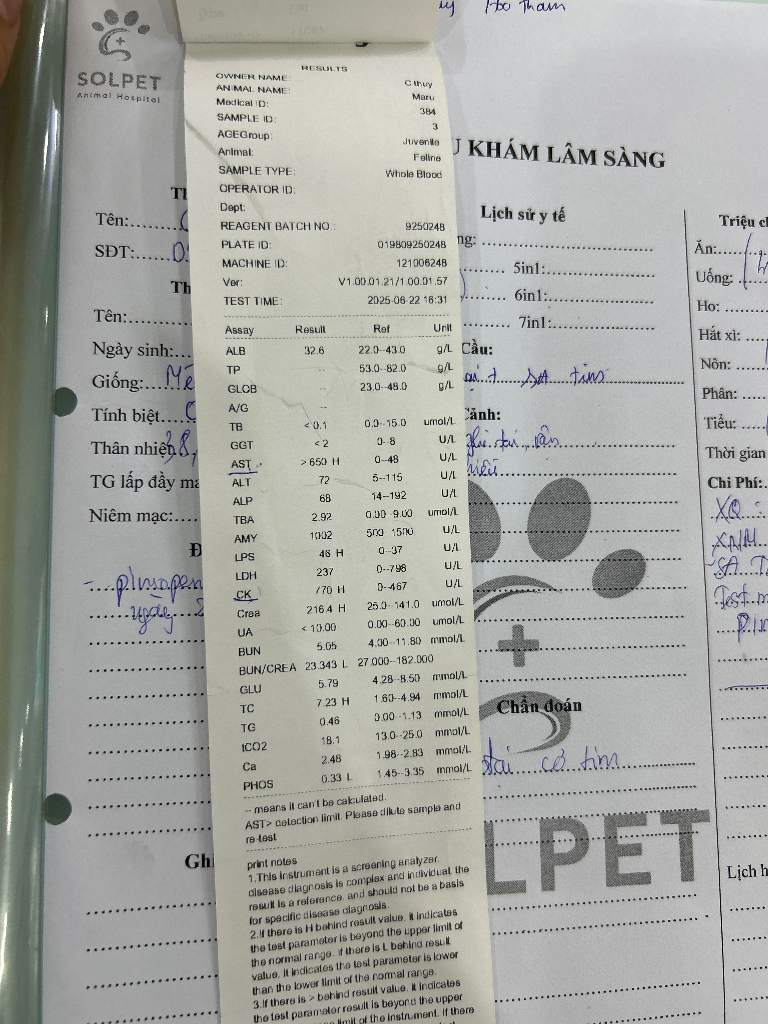 Ho Tham
SOLPET
Animal Hospital
RESULTS
OWNER NAME: C thuy
ANIMAL NAME: Maru
Medical ID: 384
SAMPLE ID: 3
AGEGroup: Juvenile
Animal: Feline
SAMPLE TYPE: Whole Blood
OPERATOR ID:
Dept:
REAGENT BATCH NO.: 9250248
PLATE ID: 019809250248
MACHINE ID: 121006248
Ver: V1.00.01.21/1.00.01.57
TEST TIME: 2025-06-22 16:31
Assay Result Ref Unit
ALB 32.6 22.0--43.0 g/L
TP -- 53.0--82.0 g/L
GLOB -- 23.0--48.0 g/L
A/G --
TB < 0.1 0.0--15.0 umol/L
GGT < 2 0--8 U/L
AST > 650 H 0--48 U/L
ALT 72 5--115 U/L
ALP 68 14--192 U/L
TBA 2.92 0.00--9.00 umol/L
AMY 1002 500--1500 U/L
LPS 46 H 0--37 U/L
LDH 237 0--798 U/L
CK 770 H 0--467 U/L
Crea 216.4 H 25.0--141.0 umol/L
UA < 10.00 0.00--60.00 umol/L
BUN 5.05 4.00--11.80 mmol/L
BUN/CREA 23.343 L 27.000--182.000
GLU 5.79 4.28--8.50 mmol/L
TC 7.23 H 1.60--4.94 mmol/L
TG 0.46 0.00--1.13 mmol/L
tCO2 18.1 13.0--25.0 mmol/L
Ca 2.48 1.98--2.83 mmol/L
PHOS 0.33 L 1.45--3.35 mmol/L
-- means it can't be calculated.
AST> detection limit. Please dilute sample and
re-test
print notes
1.This instrument is a screening analyzer.
disease diagnosis is complex and individual, the
result is a reference, and should not be a basis
for specific disease diagnosis.
2.If there is H behind result value. It indicates
the test parameter is beyond the upper limit of
the normal range. if there is L behind result
value. It indicates the test parameter is lower
than the lower limit of the normal range.
3.If there is > behind result value. It indicates
the test parameter result is beyond the upper
limit of the instrument. If there
U KHÁM LÂM SÀNG
Tên:
SĐT:
Tên:
Ngày sinh:
Giống:
Tính biệt
Thân nhiệt 38,
TG lấp đầy ma
Niêm mạc:
ngày
Ghi
Lịch sử y tế
5in1:
6in1:
7in1:
Cầu:
SA tim
Cảnh:
Chẩn đoán
cơ tim
LPET
Triệu ch
Ăn:
Uống:
Ho:
Hắt xì:
Nôn:
Phân:
Tiểu:
Thời gian
Chi Phí:
XQ :
XNM
SA T
Test
Lịch h